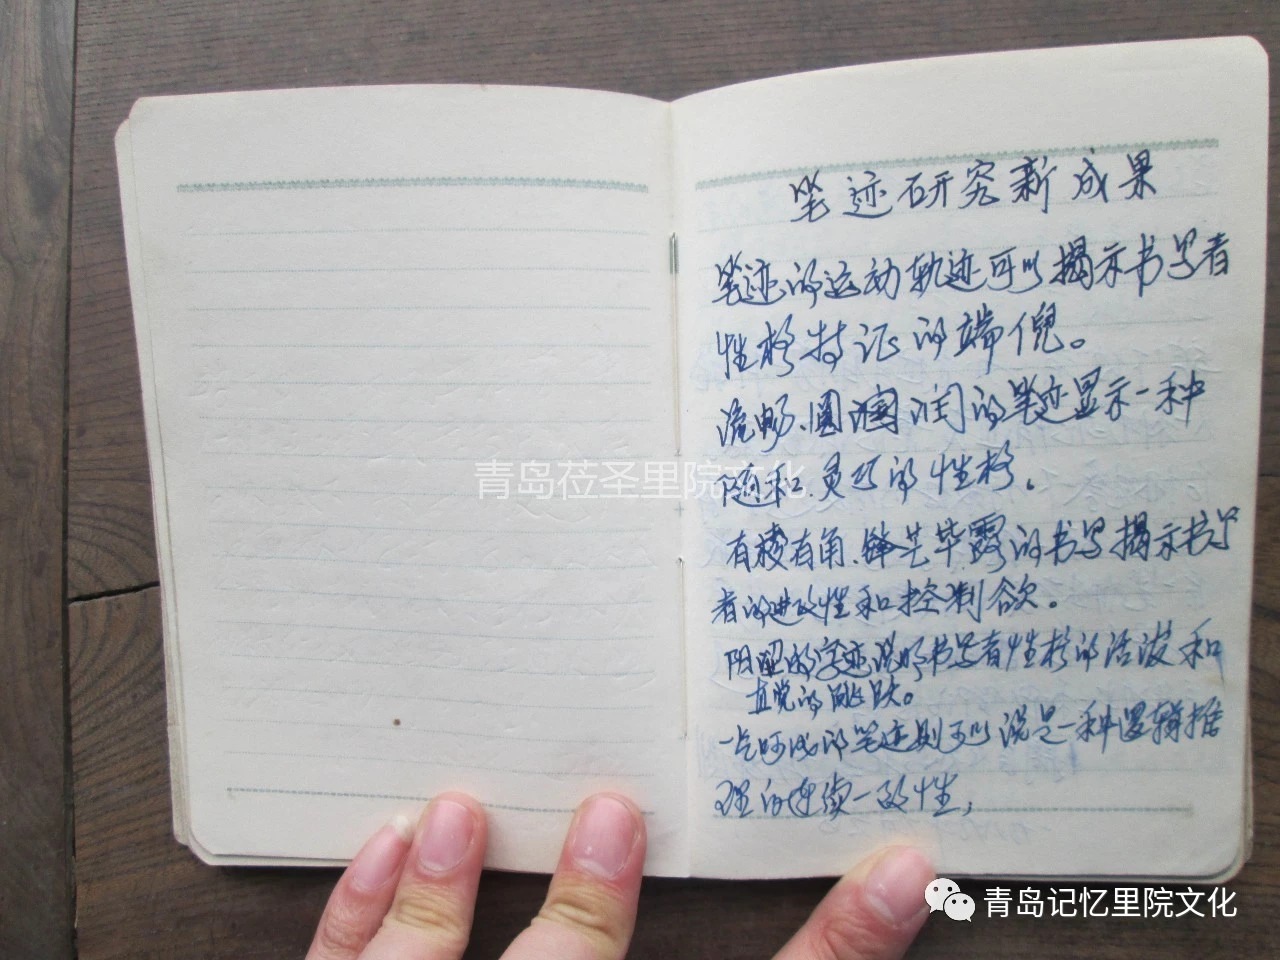 笔迹研究新成果
笔迹的运动轨迹可以揭示书写者
性格特证的端倪。
流畅、圆润的笔迹显示一种
随和、灵巧的性格。
有棱有角、锋芒毕露的书写揭示书写
者的进攻性和控制欲。
的字迹说明书写者性格的活泼和
直觉的跳跃。
一气呵成的笔迹则可以说是一种逻辑推
理的连续一致性,
青岛莅圣里院文化
青岛记忆里院文化